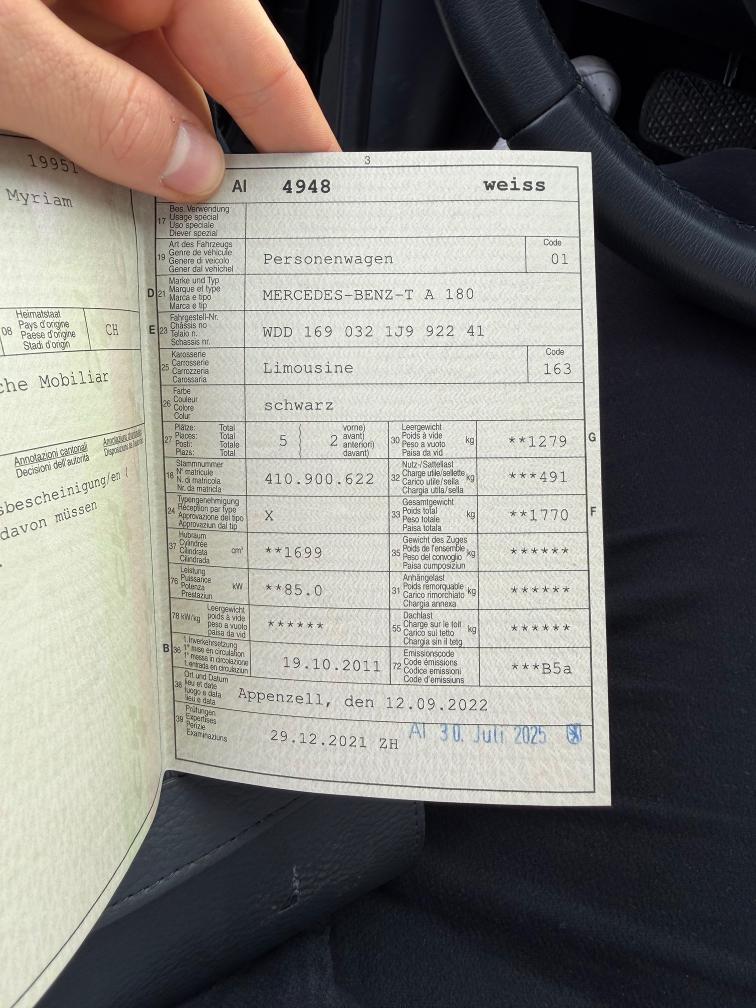 19951
Myriam
08
Heimatstaat
Pays d'origine
Paese d'origine
Stadi d'origin
CH
che Mobiliar
Annotazioni cantonali
Decisioni dell'autorità
sbescheinigung/en
davon müssen
3
AI 4948 weiss
17
Bes. Verwendung
Usage spécial
Uso speciale
Diever spezial
19
Art des Fahrzeugs
Genre de véhicule
Genere di veicolo
Gener dal vehichel
Personenwagen
Code
01
D 21
Marke und Typ
Marque et type
Marca e tipo
Marca e tip
MERCEDES-BENZ-T A 180
E 23
Fahrgestell-Nr.
Châssis no
Telaio n.
Schassis nr.
WDD 169 032 1J9 922 41
25
Karosserie
Carrosserie
Carrozzeria
Carossaria
Limousine
Code
163
26
Farbe
Couleur
Colore
Colur
schwarz
27
Plätze: Total
Places: Total
Posti: Totale
Plazs: Total
5
2
vorne)
avant)
anteriori)
davant)
30
Leergewicht
Poids à vide
Peso a vuoto
Paisa da vid
kg
**1279
G
18
Stammnummer
N° matricule
N. di matricola
Nr. da matricla
410.900.622
32
Nutz-/Sattellast
Charge utile/sellette
Carico utile/sella
Chargia utila/sella
kg
***491
24
Typengenehmigung
Réception par type
Approvazione del tipo
Approvaziun dal tip
X
33
Gesamtgewicht
Poids total
Peso totale
Paisa totala
kg
**1770
F
37
Hubraum
Cylindrée
Cilindrata
Cilindrada
cm³
**1699
35
Gewicht des Zuges
Poids de l'ensemble
Peso del convoglio
Paisa cumposiziun
kg
******
76
Leistung
Puissance
Potenza
Prestaziun
kW
**85.0
31
Anhängelast
Poids remorquable
Carico rimorchiato
Chargia annexa
kg
******
78 kW/kg
Leergewicht
poids à vide
peso a vuoto
paisa da vid
******
55
Dachlast
Charge sur le toit
Carico sul tetto
Chargia sin il tetg
kg
******
B 36
1. Inverkehrsetzung
1re mise en circulation
1a messa in circolazione
1. entrada en circulaziun
19.10.2011
72
Emissionscode
Code émissions
Codice emissioni
Code d'emissiuns
***B5a
38
Ort und Datum
lieu et date
luogo e data
lieu e data
Appenzell, den 12.09.2022
39
Prüfungen
Expertises
Perizie
Examinaziuns
29.12.2021 ZH
AI 30. Juli 2025